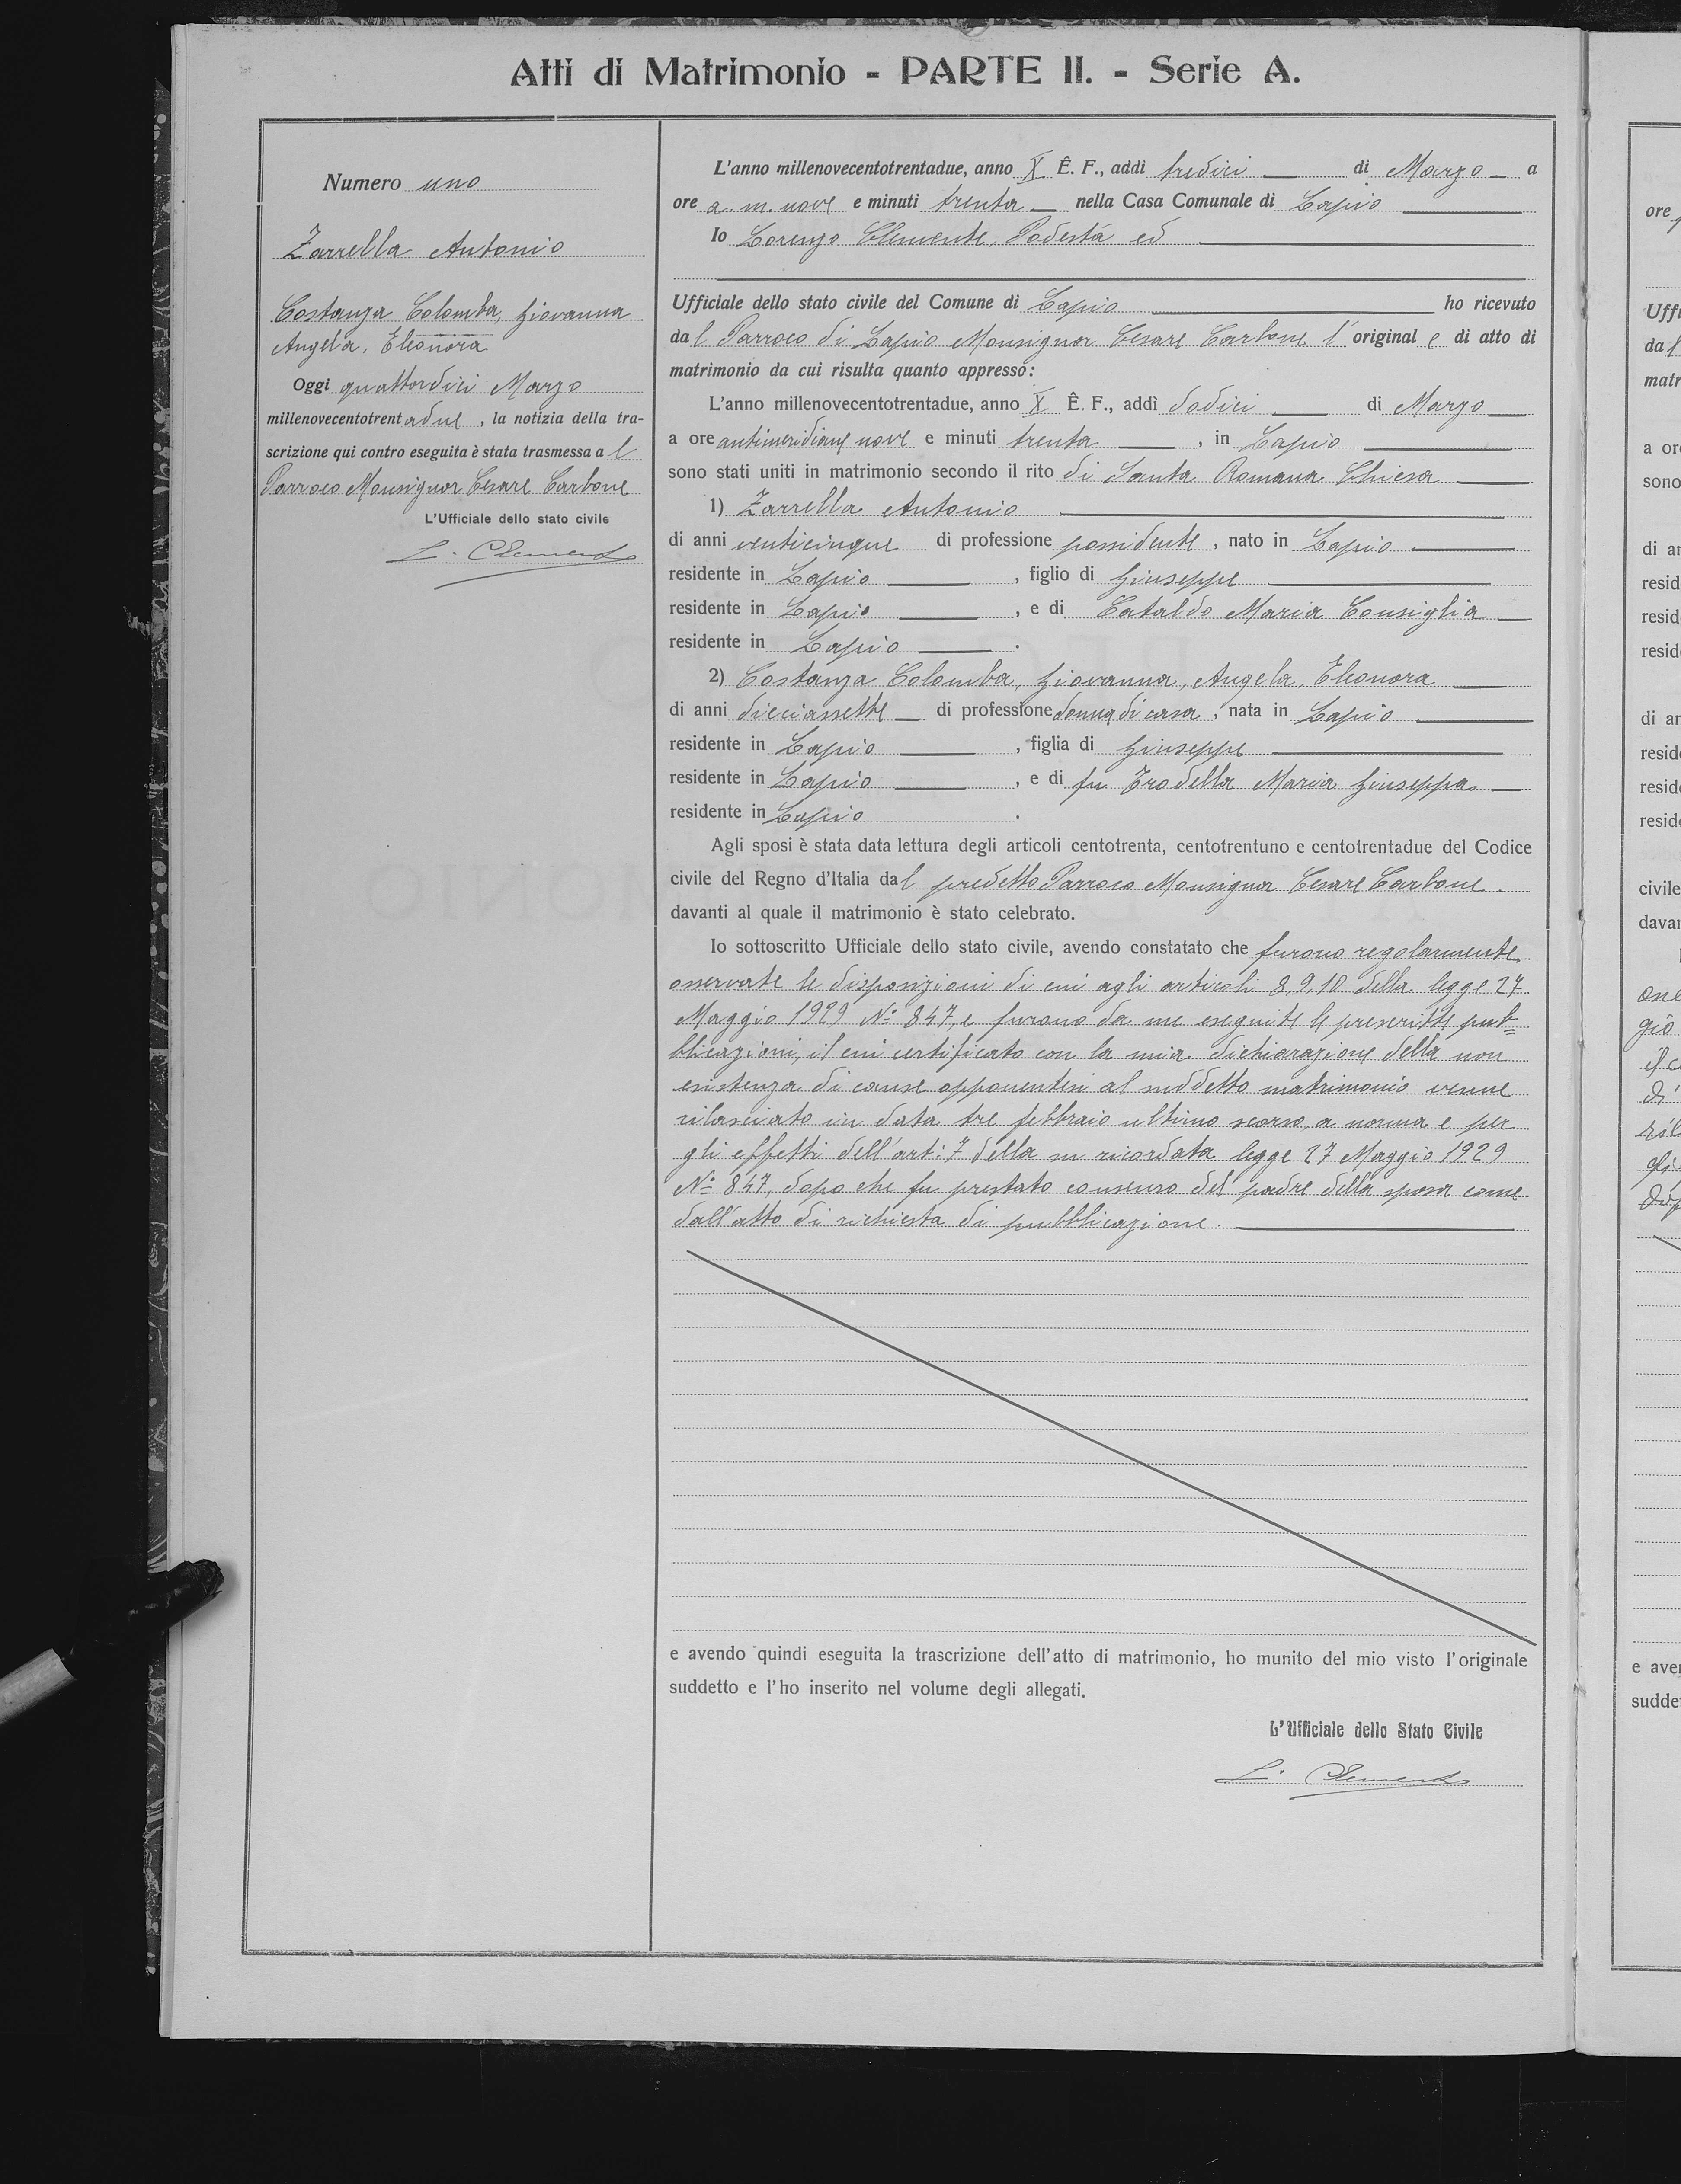 Atti di Matrimonio - PARTE II. - Serie A.
Numero uno
Zarrella Antonio
Costanza Colomba, Giovanna
Angela, Eleonora
Oggi quattordici Marzo
millenovecentotrentadue, la notizia della tra-
scrizione qui contro eseguita è stata trasmessa al
Parroco Monsignor Cesare Carbone
L'Ufficiale dello stato civile
L. Clemente
L'anno millenovecentotrentadue, anno X E. F., addì tredici di Marzo a
ore a. m. nove e minuti trenta nella Casa Comunale di Lapio
Io Lorenzo Clemente, Podestà ed
Ufficiale dello stato civile del Comune di Lapio ho ricevuto
dal Parroco di Lapio Monsignor Cesare Carbone l'originale di atto di
matrimonio da cui risulta quanto appresso:
L'anno millenovecentotrentadue, anno X E. F., addì dodici di Marzo
a ore antimeridiane nove e minuti trenta, in Lapio
sono stati uniti in matrimonio secondo il rito di Santa Romana Chiesa
1) Zarrella Antonio
di anni venticinque di professione possidente, nato in Lapio
residente in Lapio, figlio di Giuseppe
residente in Lapio, e di Cataldo Maria Consiglia
residente in Lapio.
2) Costanza Colomba, Giovanna, Angela, Eleonora
di anni dieciassette di professione donna di casa, nata in Lapio
residente in Lapio, figlia di Giuseppe
residente in Lapio, e di fu Trodella Maria Giuseppa
residente in Lapio.
Agli sposi è stata data lettura degli articoli centotrenta, centotrentuno e centotrentadue del Codice
civile del Regno d'Italia dal predetto Parroco Monsignor Cesare Carbone.
davanti al quale il matrimonio è stato celebrato.
Io sottoscritto Ufficiale dello stato civile, avendo constatato che furono regolarmente
osservate le disposizioni di cui agli articoli 8, 9, 10 della legge 27
Maggio 1929 N.° 847, e furono da me eseguite le prescritte pub=
blicazioni, il cui certificato con la mia dichiarazione della non
esistenza di cause opponentesi al suddetto matrimonio venne
rilasciato in data tre febbraio ultimo scorso, a norma e per
gli effetti dell'art: 7 della su ricordata legge 27 Maggio 1929
N.° 847, dopo che fu prestato consenso del padre della sposa come
dall'atto di richiesta di pubblicazione.
e avendo quindi eseguita la trascrizione dell'atto di matrimonio, ho munito del mio visto l'originale
suddetto e l'ho inserito nel volume degli allegati.
L'Ufficiale dello Stato Civile
L. Clemente